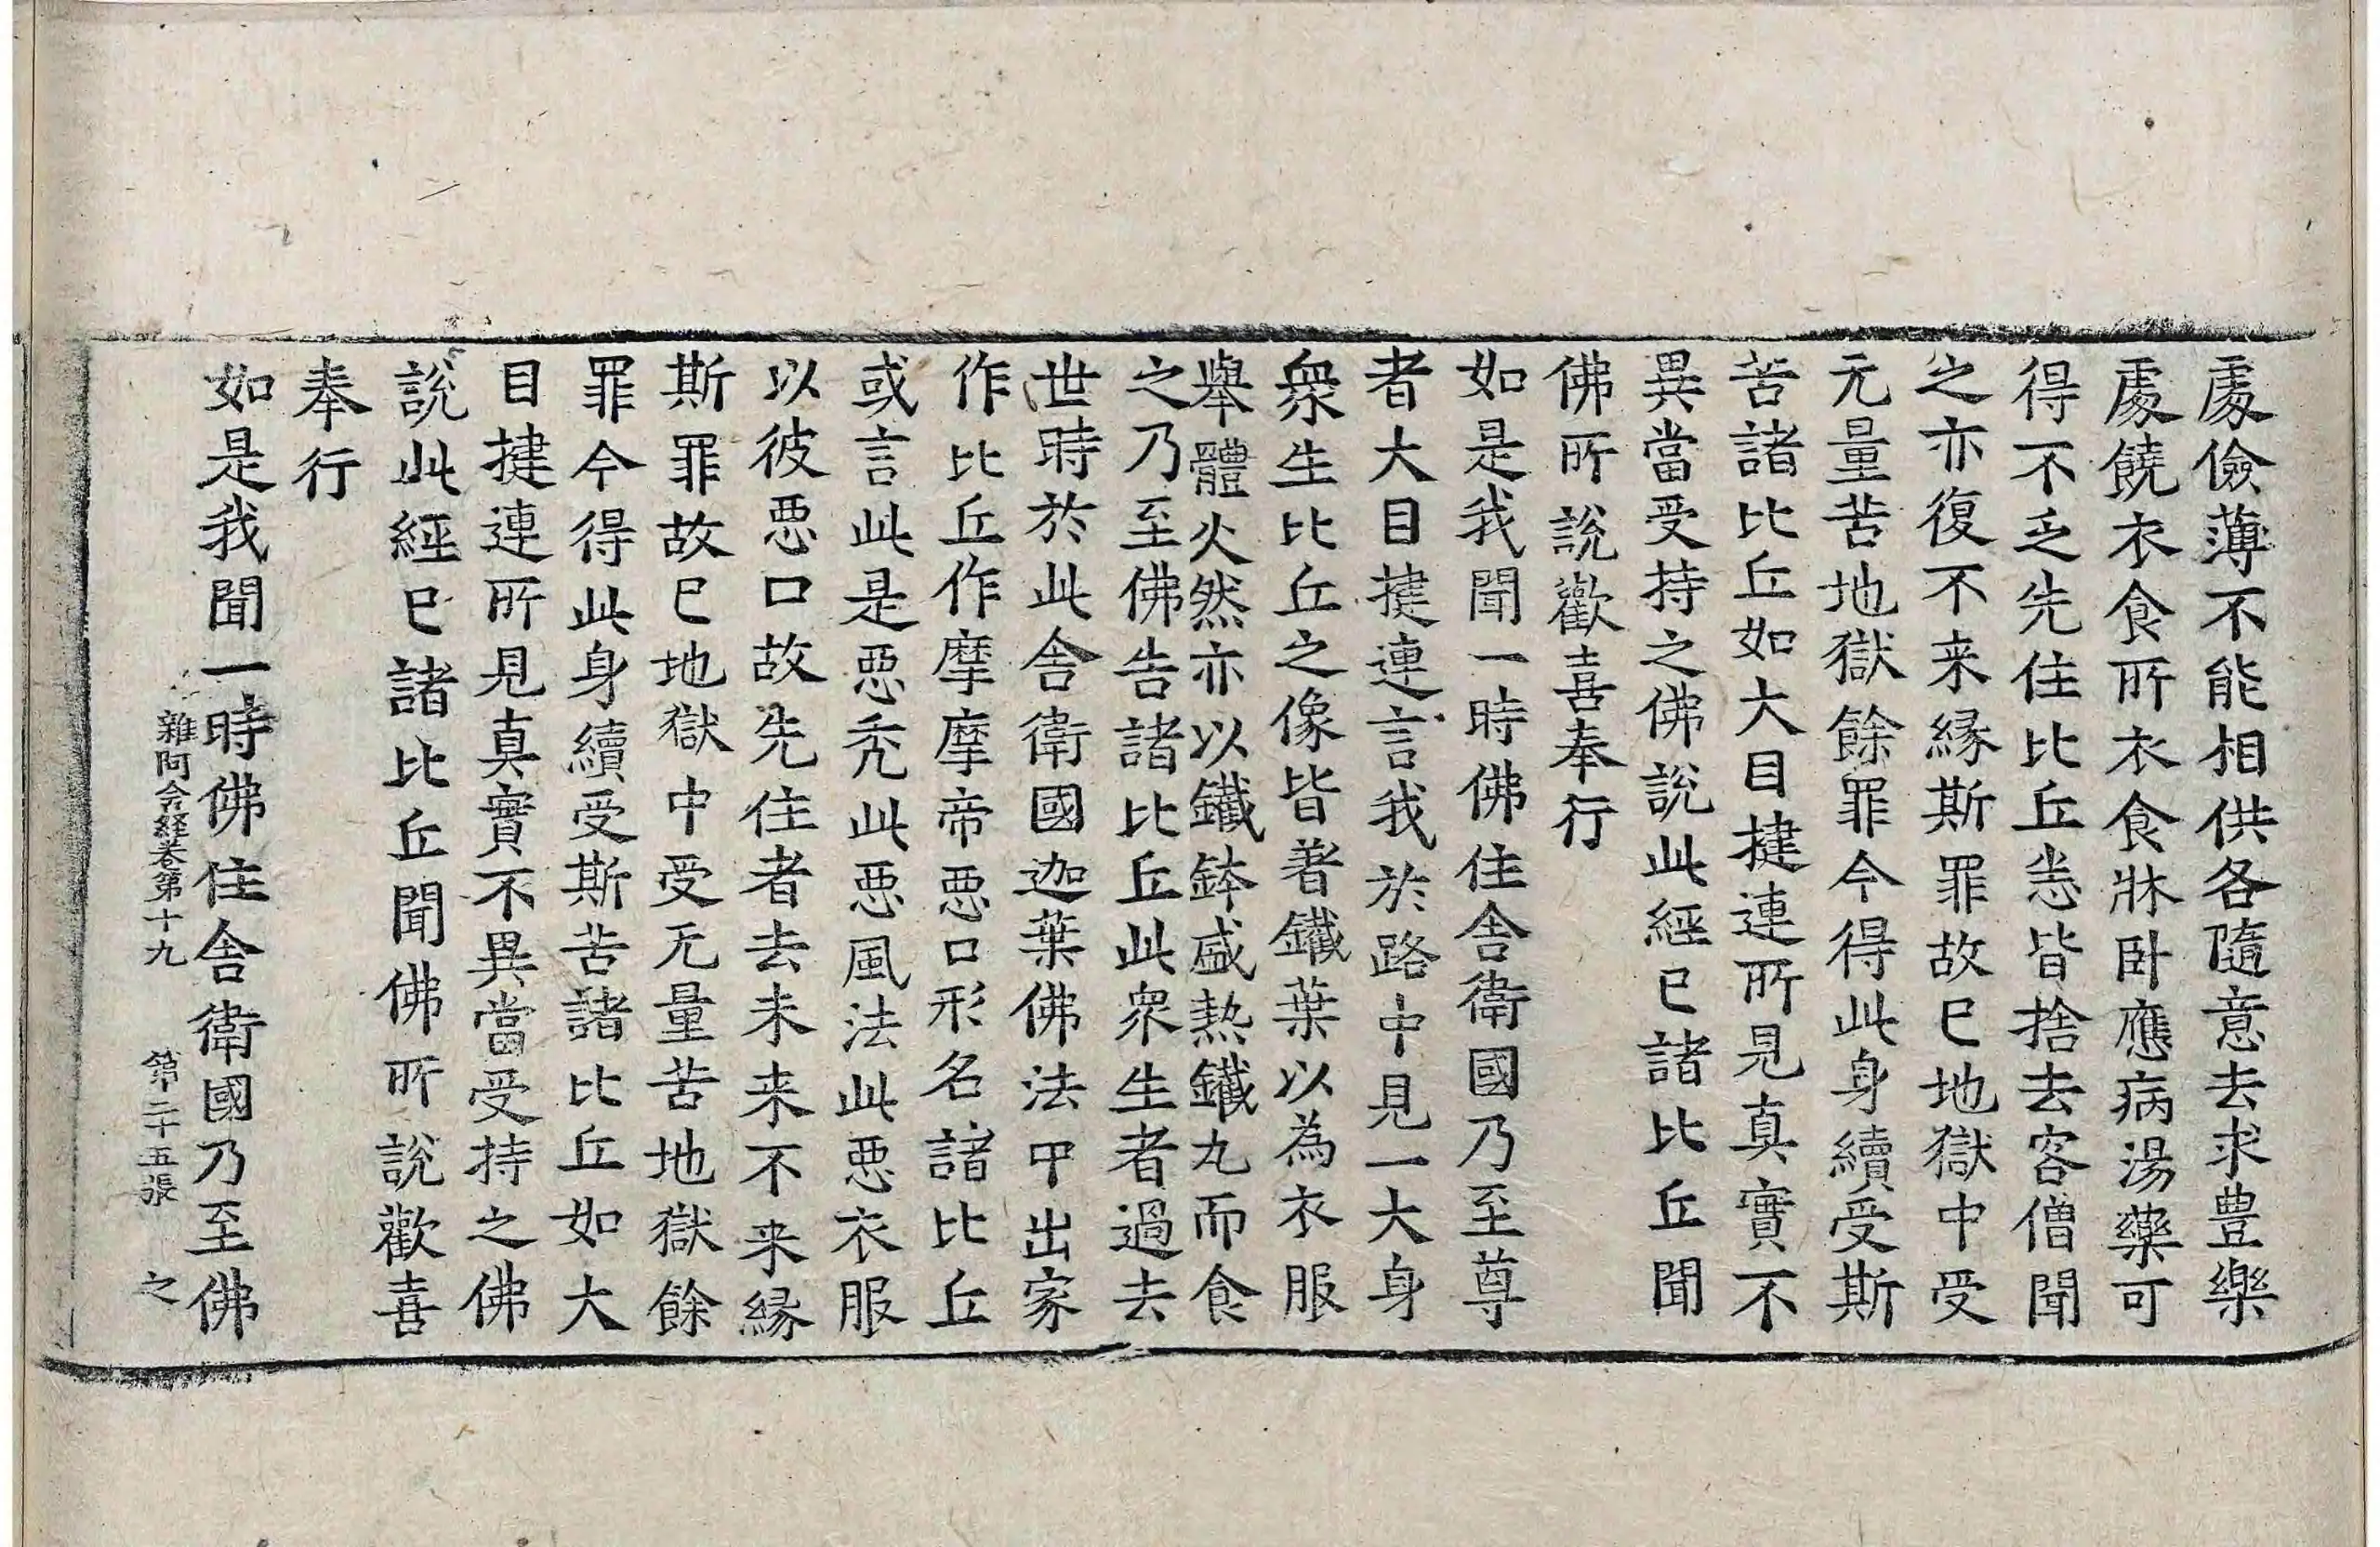 處儉薄不能相供各隨意去求豊樂
處饒衣食所衣食牀卧應病湯藥可
得不乏先住比丘悉皆捨去客僧聞
之亦復不来縁斯罪故已地獄中受
无量苦地獄餘罪今得此身續受斯
苦諸比丘如大目揵連所見真實不
異當受持之佛說此經已諸比丘聞
佛所說歡喜奉行
如是我聞一時佛住舎衛國乃至尊
者大目揵連言我於路中見一大身
衆生比丘之像皆著鐵葉以為衣服
舉體火然亦以鐵鉢盛熱鐵丸而食
之乃至佛告諸比丘此衆生者過去
世時於此舎衛國迦葉佛法中出家
作比丘作摩摩帝惡口形名諸比丘
或言此是惡禿此惡風法此惡衣服
以彼惡口故先住者去未来不来縁
斯罪故已地獄中受无量苦地獄餘
罪今得此身續受斯苦諸比丘如大
目揵連所見真實不異當受持之佛
說此經已諸比丘聞佛所說歡喜
奉行
如是我聞一時佛住舎衛國乃至佛
雜阿含経卷第十九 第二十五張 之